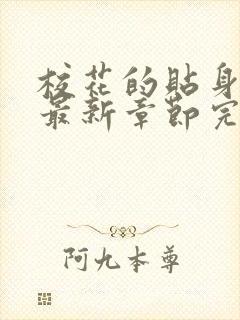 校花的貼身
最新章節完
阿九本尊